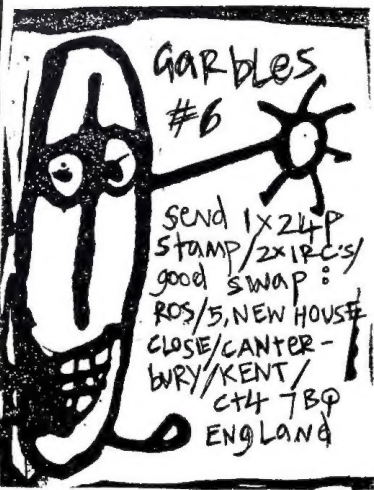 GARbles
#6
send 1x24p
stamp/2xIRC's/
good swap:
ROS/5, NEW HOUSE
CLOSE/CANTER-
bURY/KENT/
Ct4 7BQ
ENGLANd